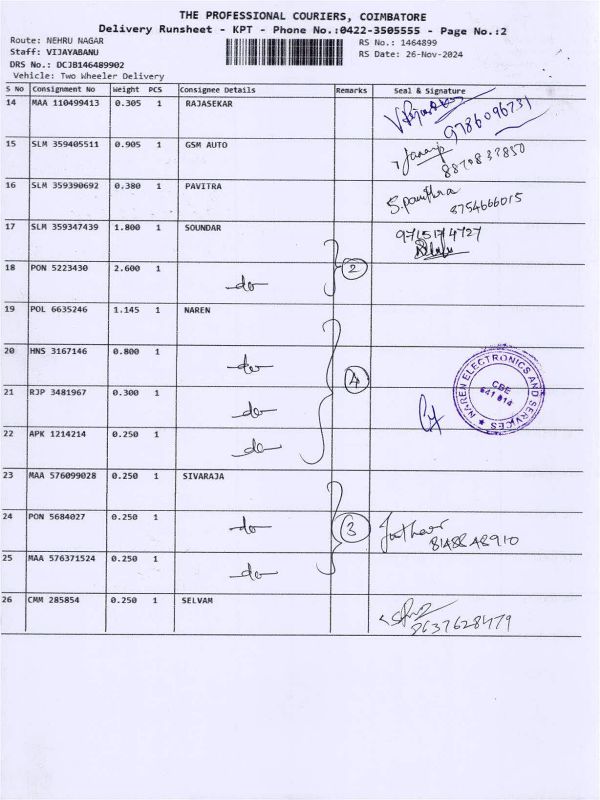 THE PROFESSIONAL COURIERS, COIMBATORE
Delivery Runsheet - KPT - Phone No.:0422-3505555 - Page No.:2
Route: NEHRU NAGAR RS No.: 1464899
Staff: VIJAYABANU RS Date: 26-Nov-2024
DRS No.: DCJB146489902
Vehicle: Two Wheeler Delivery
S No Consignment No Weight PCS Consignee Details Remarks Seal & Signature
14 MAA 110499413 0.305 1 RAJASEKAR
9786096731
15 SLM 359405511 0.905 1 GSM AUTO
8870837850
16 SLM 359390692 0.380 1 PAVITRA S.pavithra
8754666015
17 SLM 359347439 1.800 1 SOUNDAR 9715174727
18 PON 5223430 2.600 1 -do- 2
19 POL 6635246 1.145 1 NAREN
20 HNS 3167146 0.800 1 -do- 4
21 RJP 3481967 0.300 1 -do-
NAREN ELECTRONICS AND SERVICES ★
CBE
641 014
22 APK 1214214 0.250 1 -do-
23 MAA 576099028 0.250 1 SIVARAJA
24 PON 5684027 0.250 1 -do- 3
8148848910
25 MAA 576371524 0.250 1 -do-
26 CMM 285854 0.250 1 SELVAM
8637628479